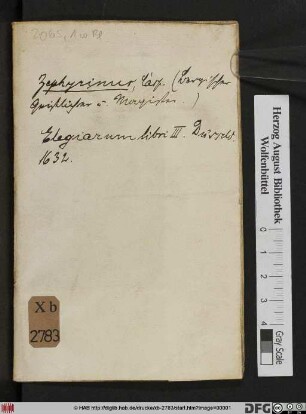 Zephyrinus, Casp. (Bergischer
Geistlicher u. Magister.)
Elegiarum libri III. Düsseld.
1632.
Xb
2783
Herzog August Bibliothek
Wolfenbüttel
0
1
2
3
4
5
Gray Scale
© HAB http://diglib.hab.de/drucke/xb-2783/start.htm?image=00001
DFG